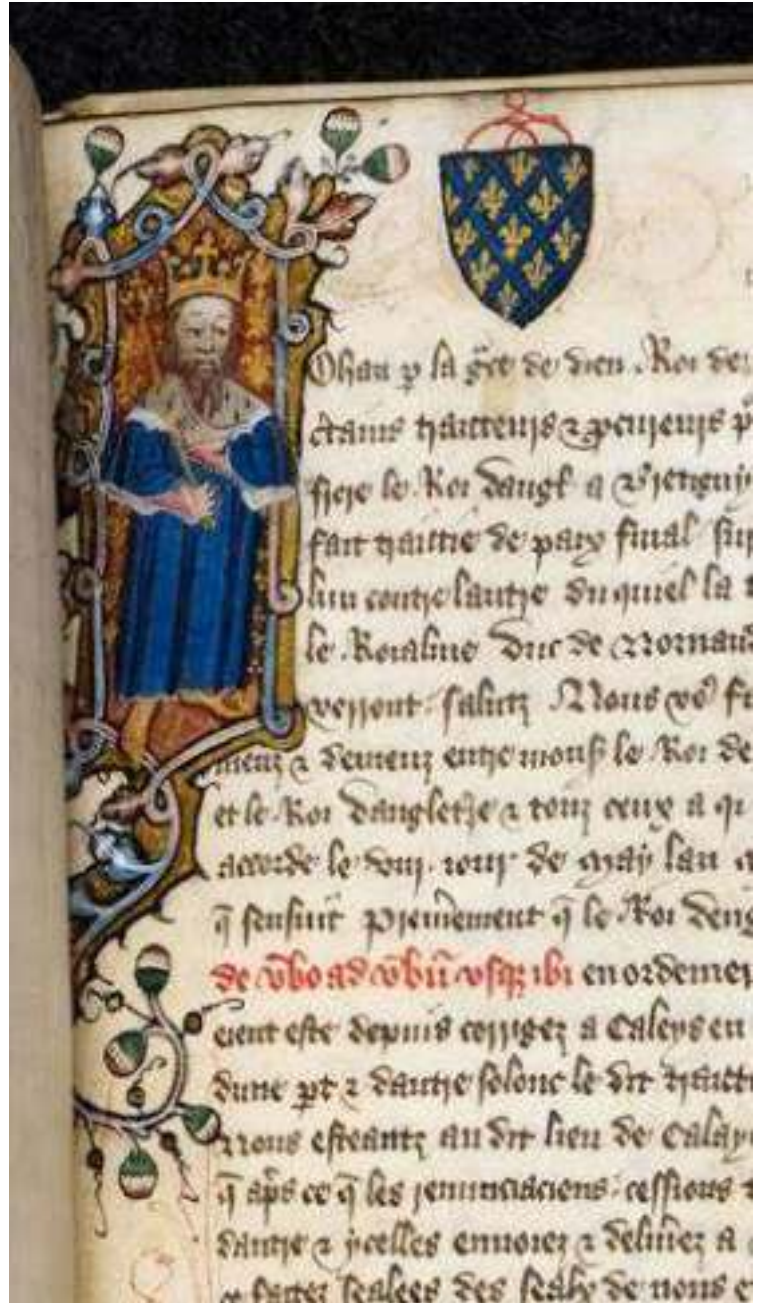 Ohan p la gce de dieu Roi de
ctanis traitteurs & pcureurs p
frere le Roi dangl a Bretigny
fait traittie de paix final sur
lun contre lautre du quiel la t
le Roialme Duc de Normand
verront salutz Nous vos f
meuz & demeurz entre mons le Roi de
et le Roi dangleterre & touz ceux a qi
accorde le viii iour de May lan
q sensuit Premierement q le Roi deng
de vbo ad vbu usqz ibi en ordemer
eient este depuis corrigez a Caleys en
dune pt & dautre solonc le dit traitt
Nous esteantz au dit lieu de Calay
q aps ce q les renunciacions cessions
dautre & ycelles enuoiez & deliurez a
faites sealees des sealx de nous e